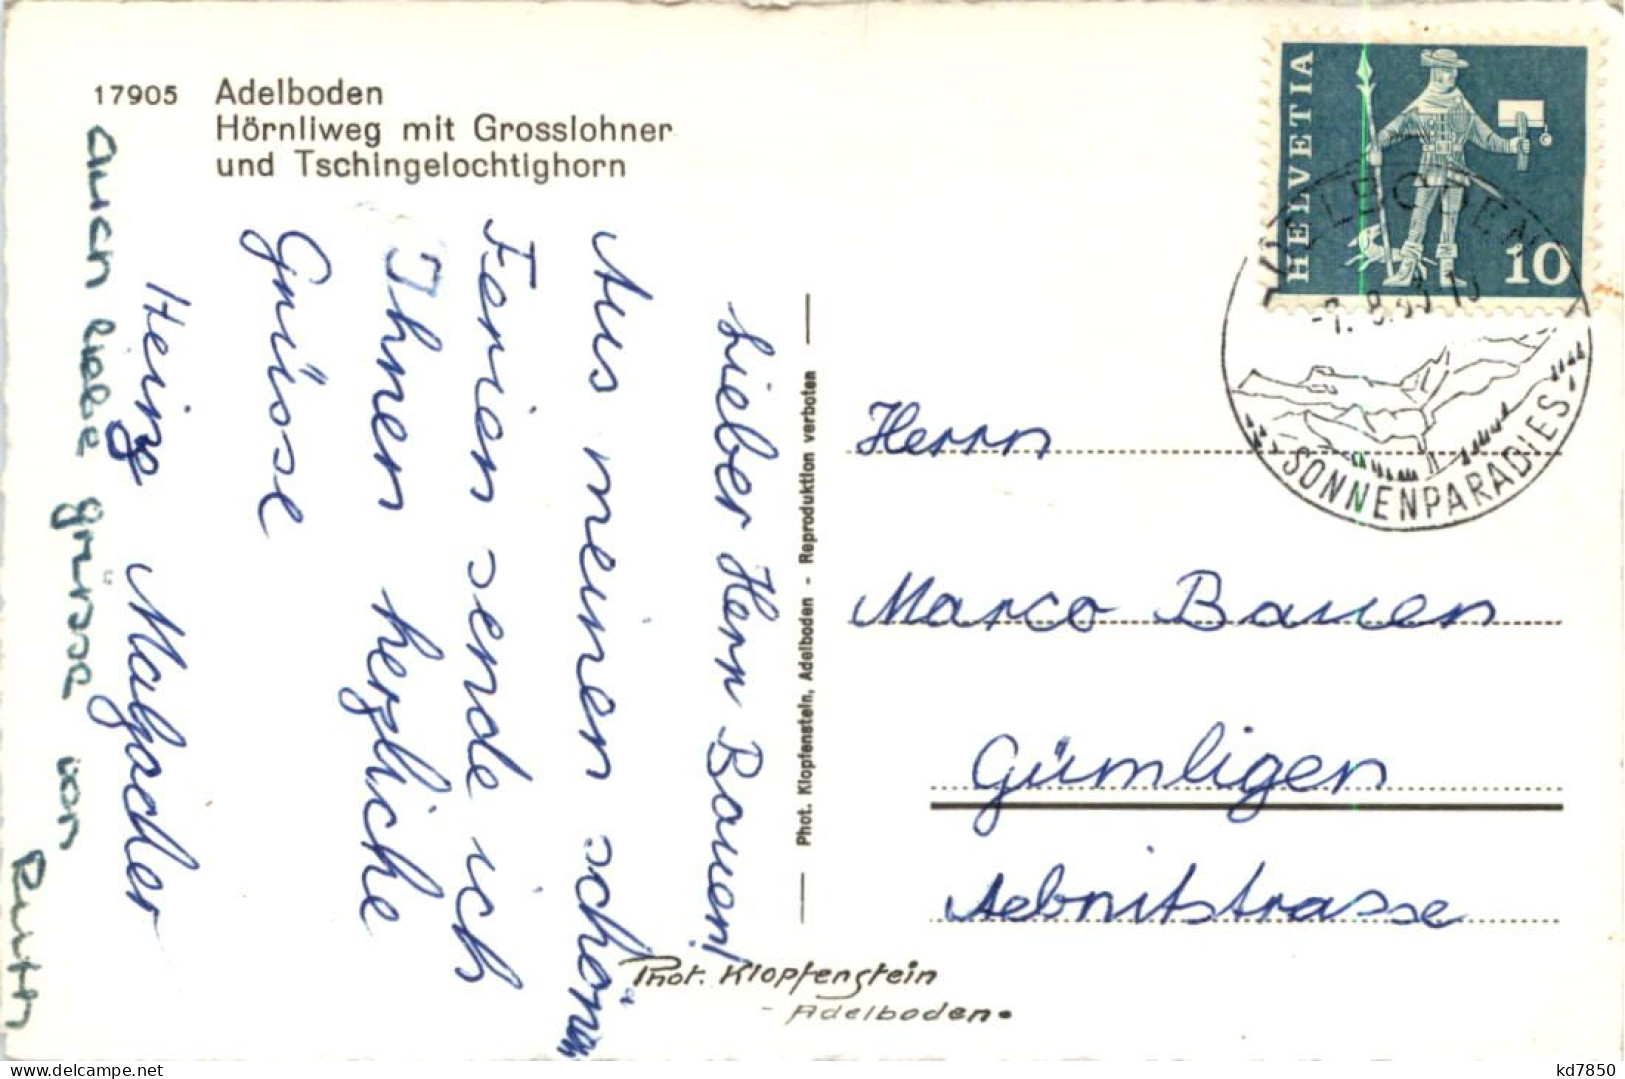 17905 Adelboden
Hörnliweg mit Grosslohner
und Tschingelochtighorn
HELVETIA
10
ADELBODEN
SONNENPARADIES
Lieber Herr Bauen!
Aus meinen schönen
Ferien sende ich
Ihnen herzliche
Grüsse
Heinz
auch liebe grüsse von
Ruth
Phot. Klopfenstein, Adelboden - Reproduktion verboten
Herrn
Marco Bauen
Gümligen
Aebnitstrasse
Phot. Klopfenstein
- Adelboden.
delcampe.net
kd7850